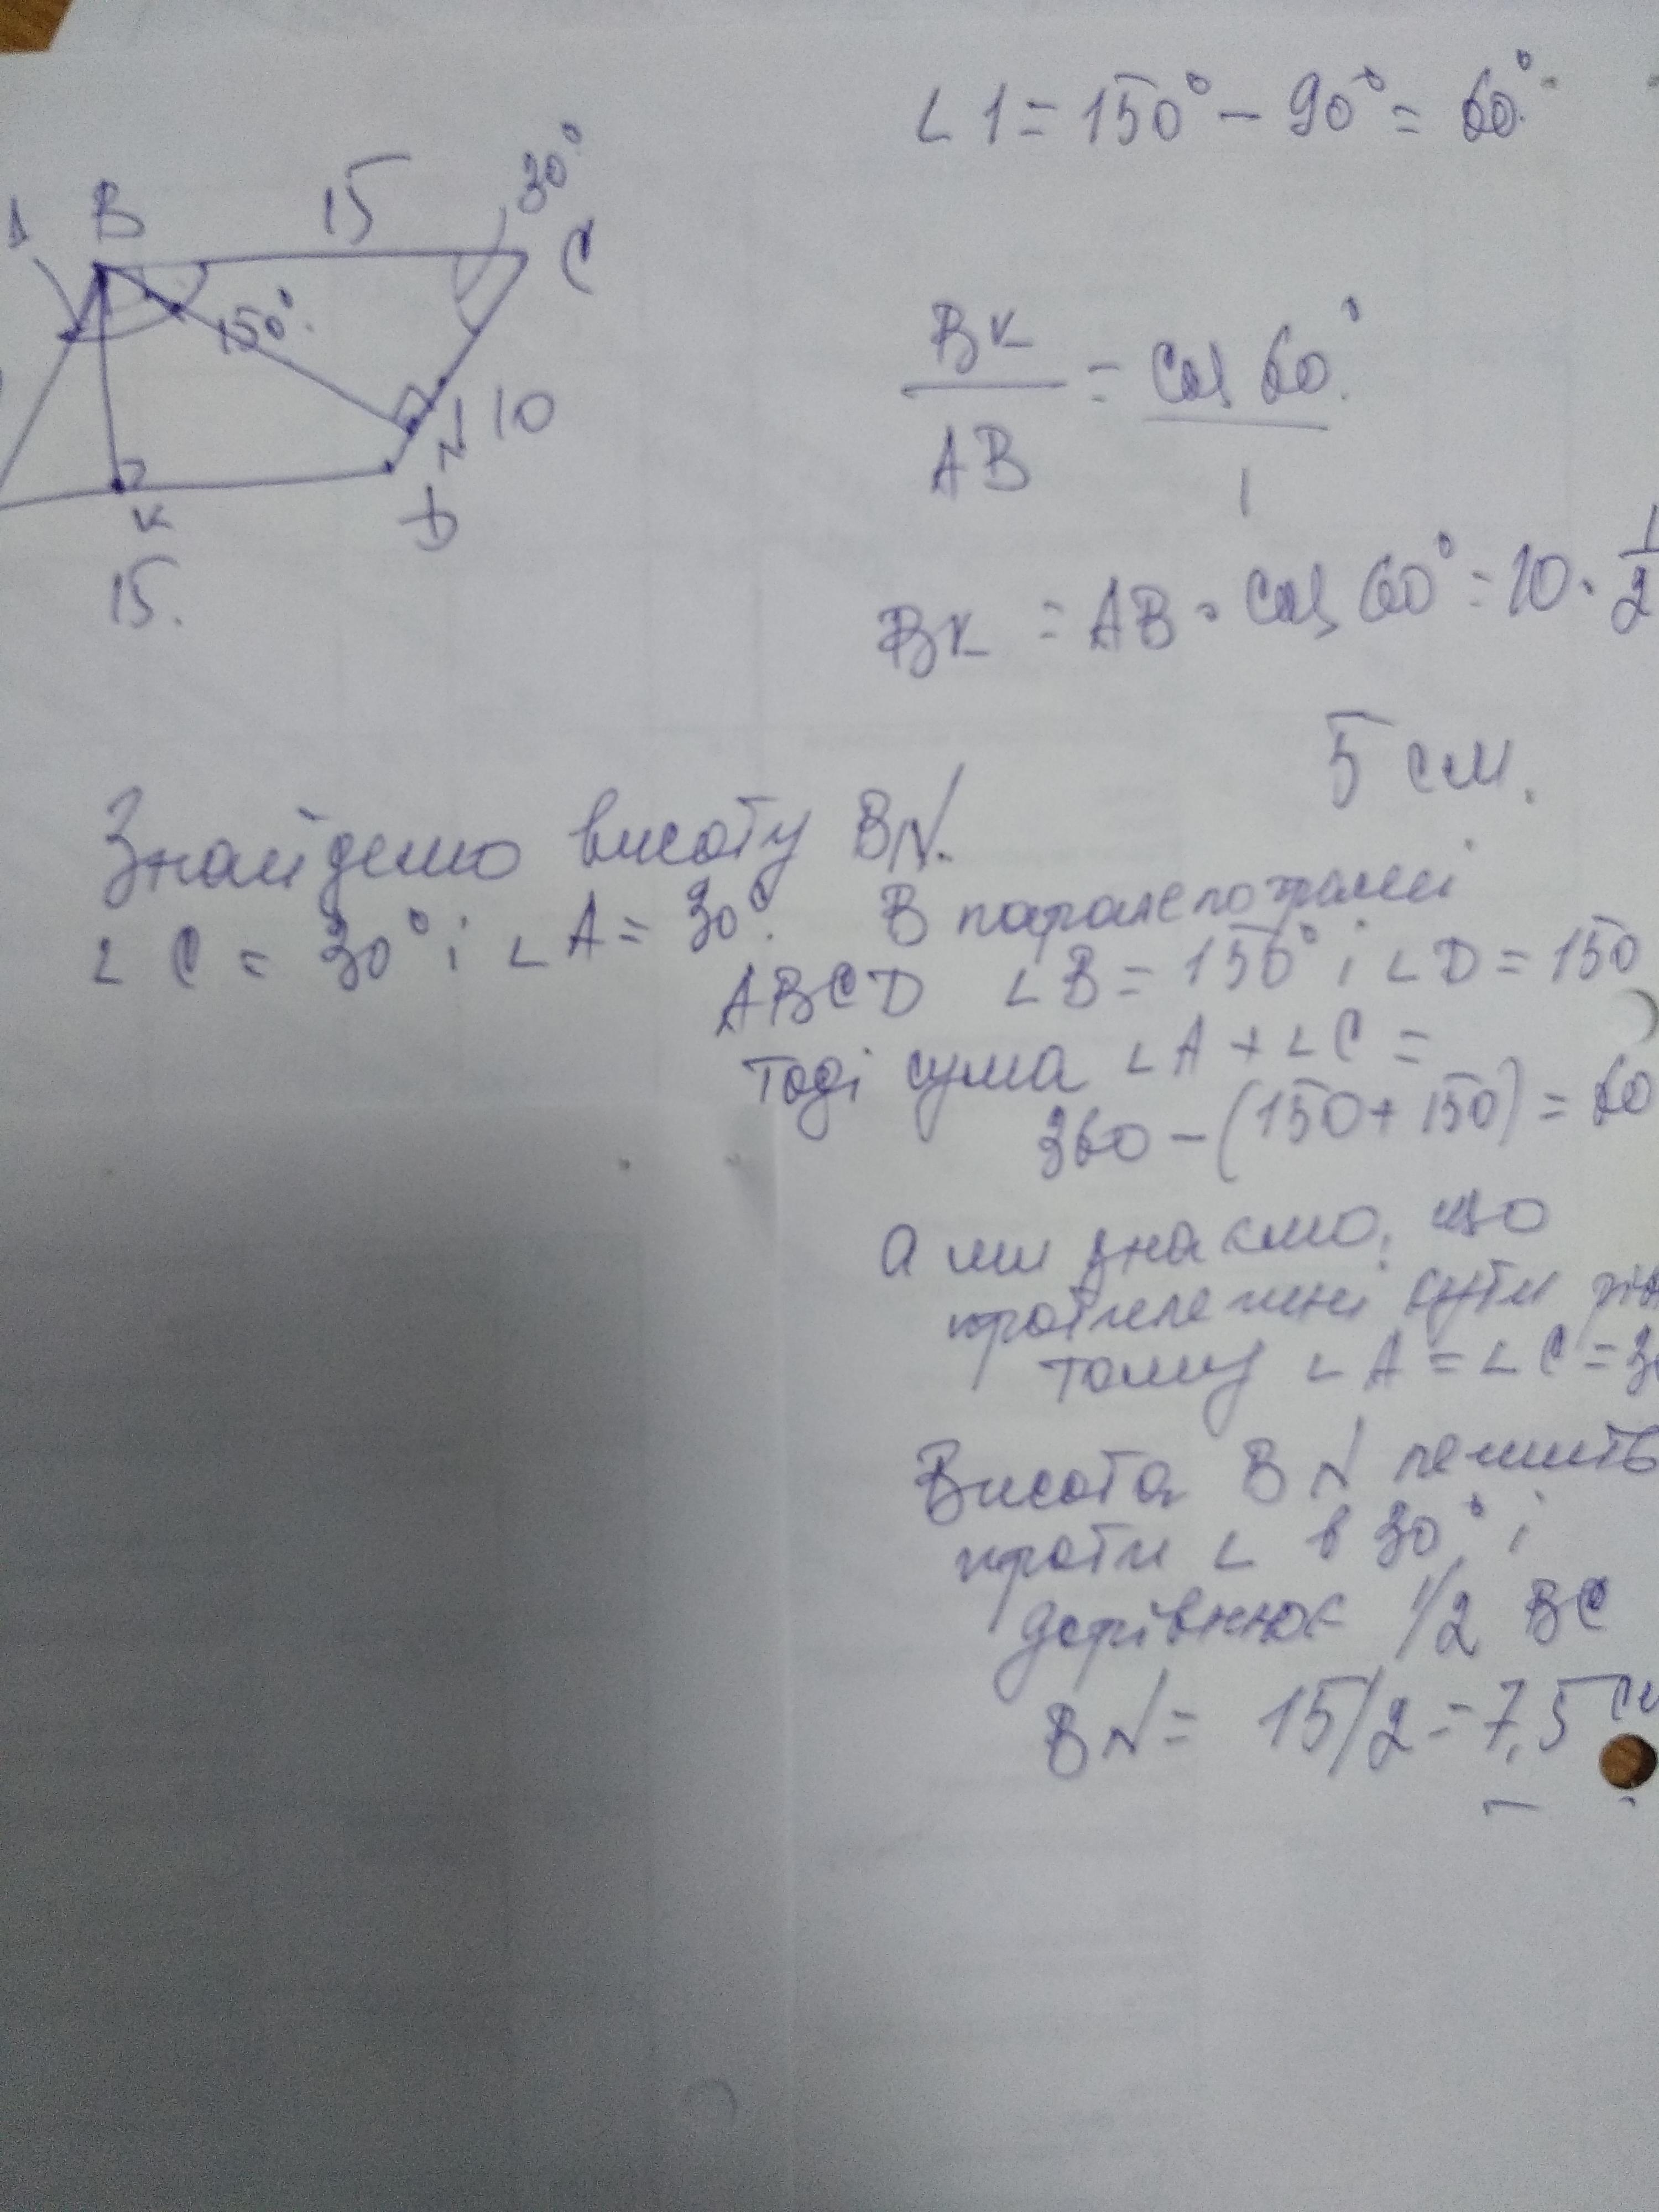 ∠1 = 150° - 90° = 60°
B 15 30° C
150°
N 10
K D
15.
BK / AB = cos 60° / 1
BK = AB · cos 60° = 10 · 1/2
5 см.
Знайдемо висоту BN.
∠C = 30° і ∠A = 30°. В паралелограмі
ABCD ∠B = 150° і ∠D = 150
тоді сума ∠A + ∠C =
360 - (150 + 150) = 60
а ми знаємо, що
протилежні кути
тому ∠A = ∠C = 30
Висота BN лежить
проти ∠ в 30° і
дорівнює 1/2 BC
BN = 15/2 = 7,5 см